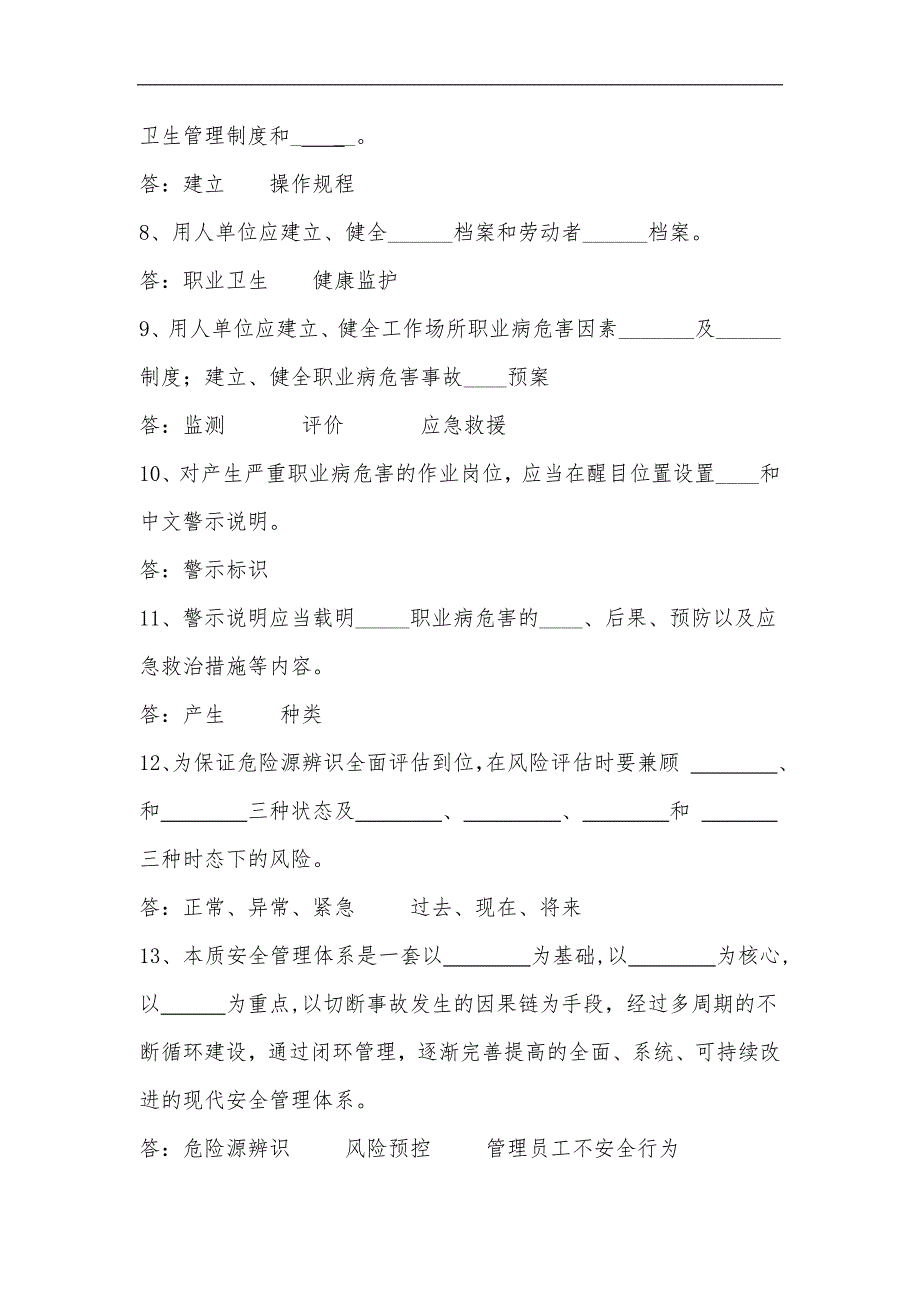 卫生管理制度和_____。
答：建立　　操作规程
8、用人单位应建立、健全______档案和劳动者______档案。
答：职业卫生　　健康监护
9、用人单位应建立、健全工作场所职业病危害因素_______及______
制度；建立、健全职业病危害事故____预案
答：监测　　　评价　　　应急救援
10、对产生严重职业病危害的作业岗位，应当在醒目位置设置____和
中文警示说明。
答：警示标识
11、警示说明应当载明_____职业病危害的____、后果、预防以及应
急救治措施等内容。
答：产生　　种类
12、为保证危险源辨识全面评估到位,在风险评估时要兼顾 ________、
和________三种状态及________、_________、________和 _______
三种时态下的风险。
答：正常、异常、紧急　　过去、现在、将来
13、本质安全管理体系是一套以________为基础,以________为核心,
以______为重点,以切断事故发生的因果链为手段，经过多周期的不
断循环建设，通过闭环管理，逐渐完善提高的全面、系统、可持续改
进的现代安全管理体系。
答：危险源辨识　　风险预控　　管理员工不安全行为